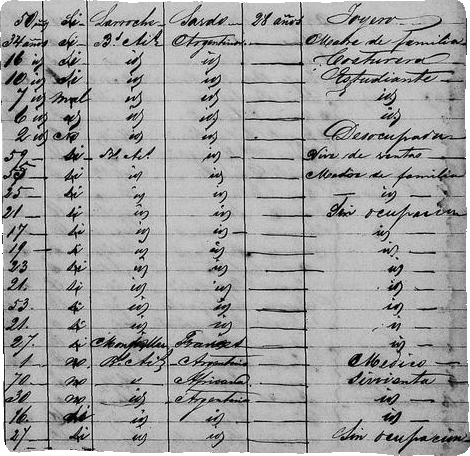 50 — Si Sarroche Sardo 28 años Joyero —
34 años Si Bs Ais Argentina — Madre de familia
16 id Si id id — Costurera
10 id Si id id — Estudiante —
7 id mal id id — id
6 id id id id — id
2 id No id id — Desocupada
59 — Si Bs As id — Vive de rentas —
55 — Si id id — Madre de familia
25 — Si id id — id —
21 — Si id id — Sin ocupacion
17 — Si id id — id
19 — Si id id — id —
23 Si id id — id
21 Si id id — id
53 Si id id — id
21 Si id id — id
27 Si Frances — id
1 — no Bs Ais Argentino — Medico —
70 — no Africana — Sirvienta
30 no id Argentina — id —
16 Si id id — id
27 — Si id id — Sin ocupacion